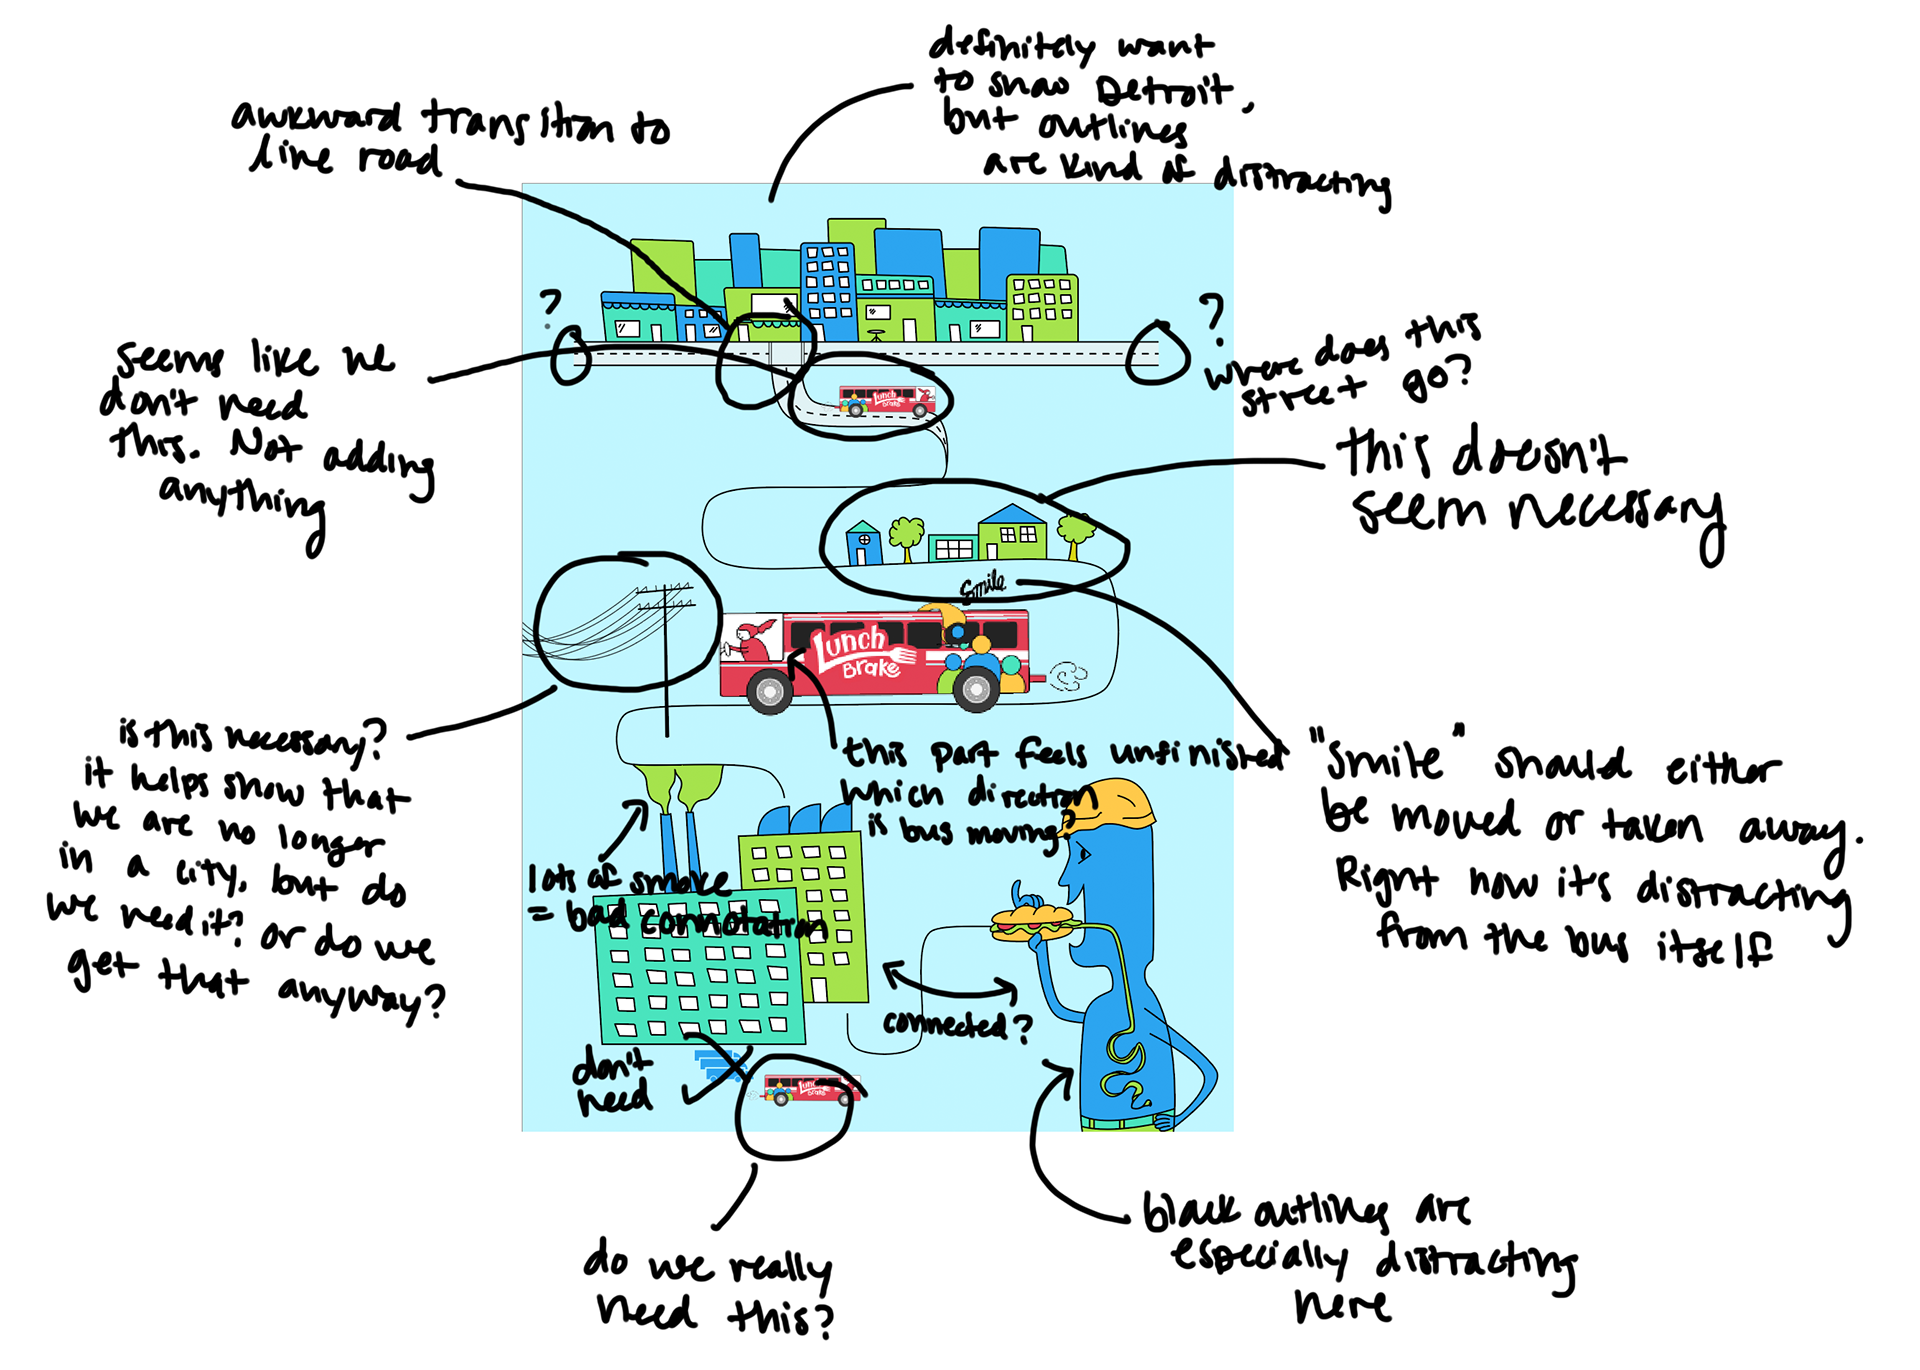 definitely want
to show Detroit,
but outlines
are kind of distracting
awkward transition to
line road
?
?
where does this
street go?
seems like we
don't need
this. Not adding
anything
Lunch
Brake
this doesn't
seem necessary
smile
Lunch
Brake
is this necessary?
it helps show that
we are no longer
in a city, but do
we need it? or do we
get that anyway?
this part feels unfinished
which direction
is bus moving?
"smile" should either
be moved or taken away.
Right now it's distracting
from the bus itself
lots of smoke
= bad connotation
connected?
don't
need
Lunch
Brake
do we really
need this?
black outlines are
especially distracting
here